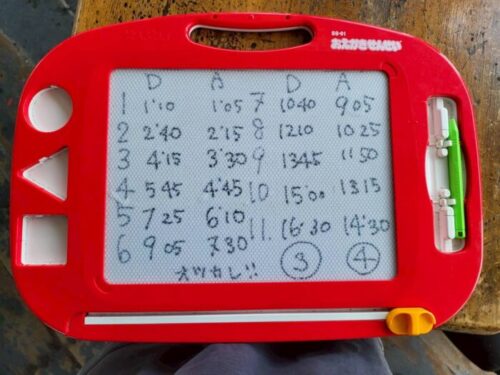 SS-01
おえかきせんせい
D A D A
1 1'10 1'05 7 1040 905
2 2'40 2'15 8 1210 1025
3 4'15 3'30 9 1345 1150
4 545 4'45 10 15'00 1315
5 725 6'10 11. 16'30 14'30
6 905 7.30 ③ ④
オツカレ!!